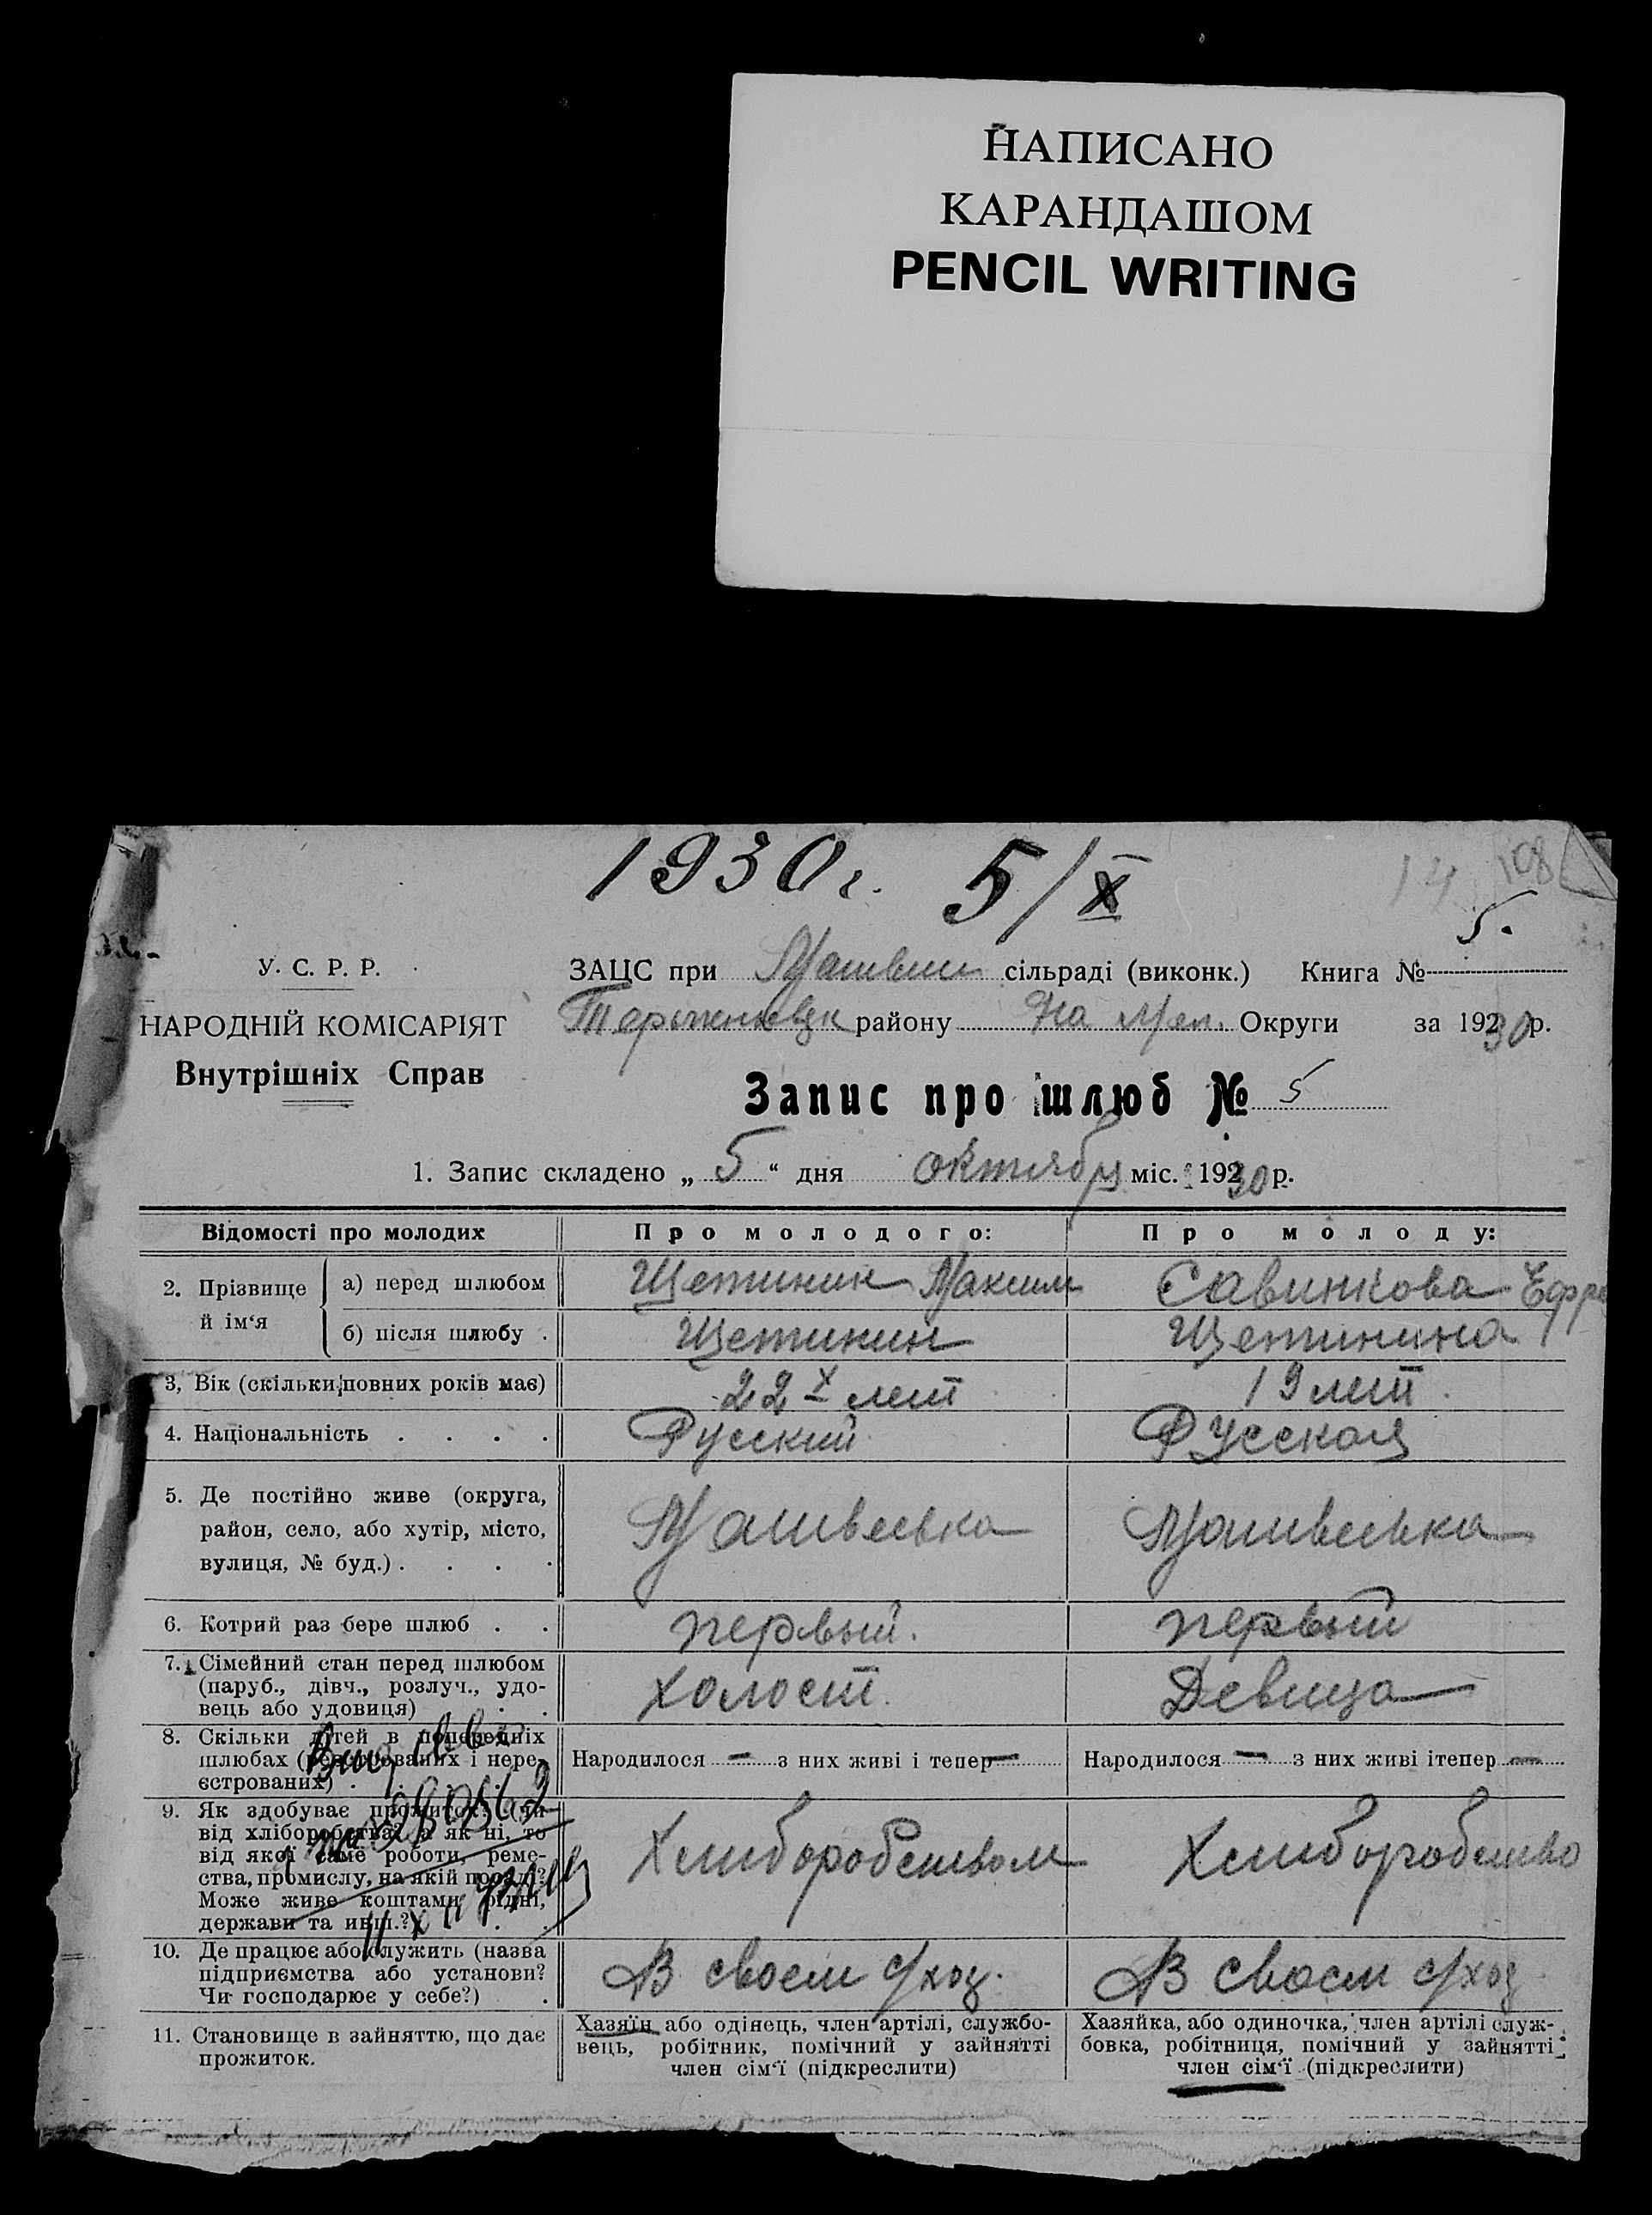 НАПИСАНО
КАРАНДАШОМ
PENCIL WRITING
1930 г. 5/X
14 108
5.
У. С. Р. Р.
ЗАЦС при сільраді (виконк.) Книга №
НАРОДНІЙ КОМІСАРІЯТ
району Округи за 1930 р.
Внутрішніх Справ
Запис про шлюб № 5
1. Запис складено „ 5 “ дня октября міс. 1930 р.
Відомості про молодих Про молодого: Про молоду:
2. Прізвище й ім‘я
а) перед шлюбом Щетинин Максим Савинкова
б) після шлюбу . Щетинин Щетинина
3, Вік (скільки повних років має) 22х лет 19 лет
4. Національність . . . . Русский Русская
5. Де постійно живе (округа,
район, село, або хутір, місто,
вулиця, № буд.) . . . .
6. Котрий раз бере шлюб . . первый. первый
7. Сімейний стан перед шлюбом
(паруб., дівч., розлуч., удо-
вець або удовиця) . . холост. Девица
8. Скільки дітей в попередніх
шлюбах (реєстрованих і нере-
єстрованих) .
Народилося — з них живі і тепер — Народилося — з них живі ітепер —
9. Як здобуває прожиток? (чи
від хліборобства? а як ні, то
від якої саме роботи, реме-
ства, промислу, на якій посаді?
Може живе коштами рідні,
держави та инш.?)
Хлиборобством Хлиборобство
10. Де працює або служить (назва
підприємства або установи?
Чи господарює у себе?) .
В своем с/хоз. В своем с/хоз
11. Становище в зайняттю, що дає
прожиток.
Хазяїн або одінець, член артілі, службо-
вець, робітник, помічний у зайнятті
член сім‘ї (підкреслити)
Хазяйка, або одиночка, член артілі служ-
бовка, робітниця, помічний у зайнятті
член сім‘ї (підкреслити)